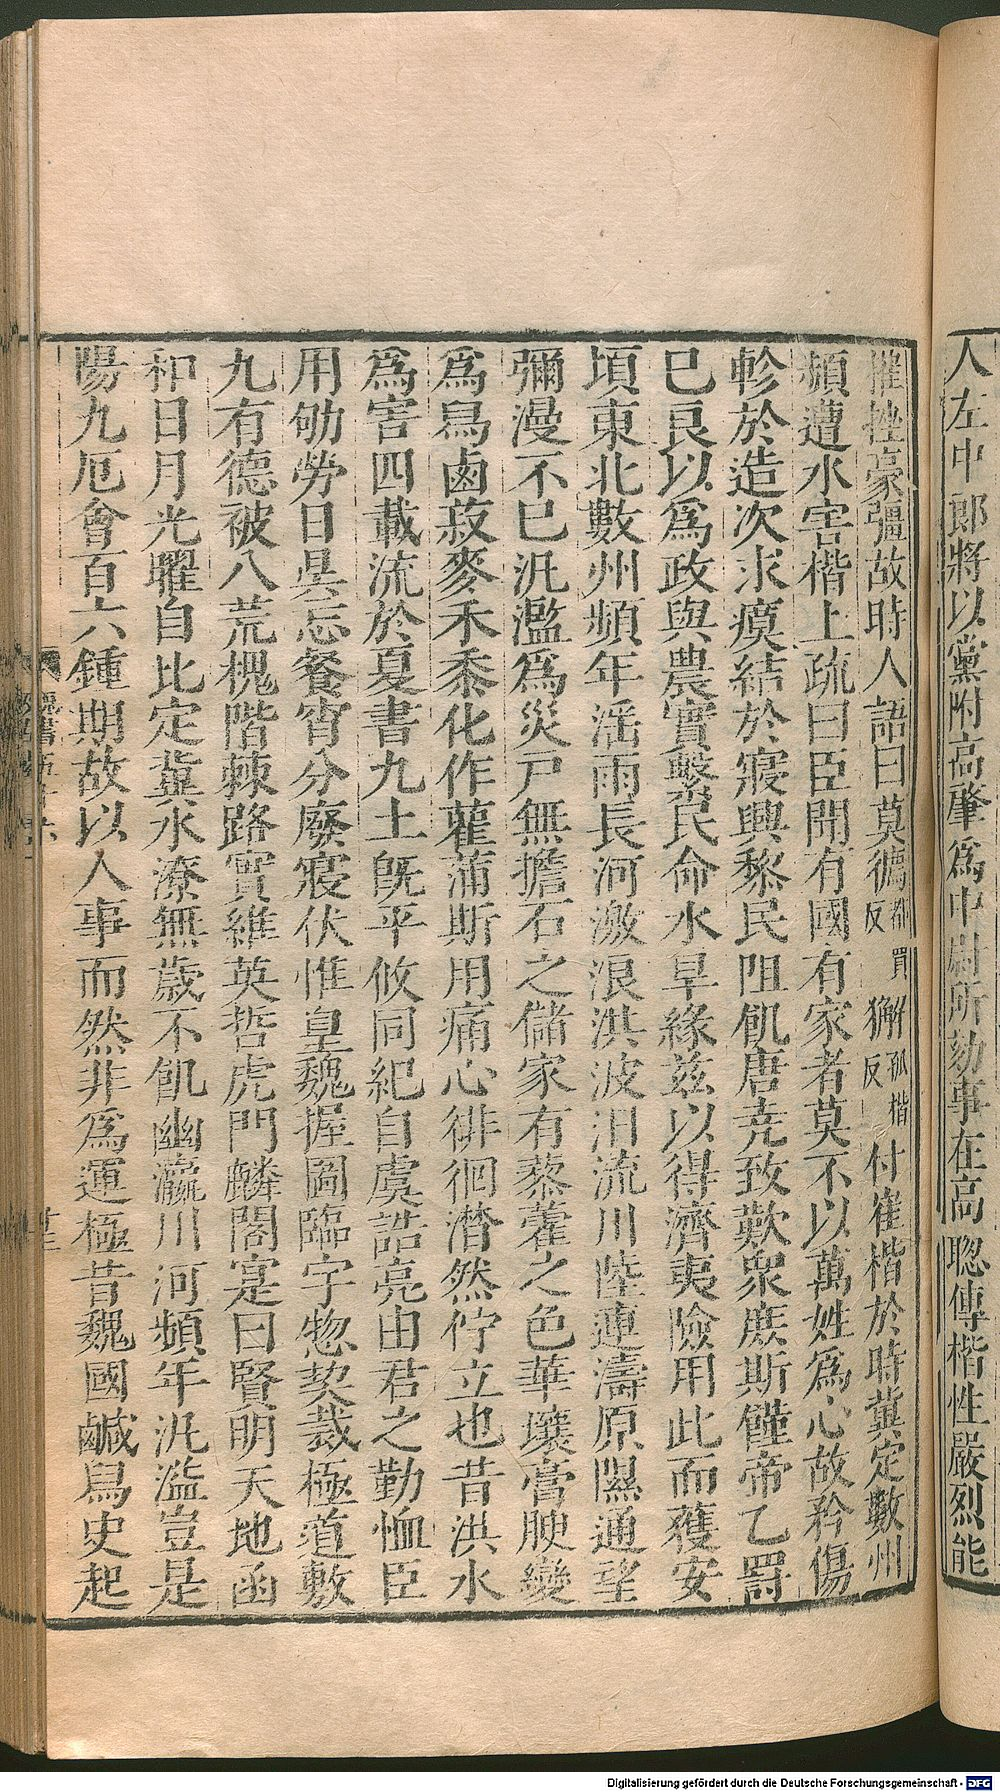 人左中郎將以黨附高肇爲中尉所劾事在高聰傳楷性嚴烈能
摧挫豪彊故時人語曰莫㺊都買反獬孤楷反付崔楷於時冀定數州
頻遭水害楷上疏曰臣聞有國有家者莫不以萬姓爲心故矜傷
軫於造次求瘼結於寢興黎民阻飢唐堯致歎衆庶斯饉帝乙罰
巳良以爲政與農實繫民命水旱緣兹以得濟夷險用此而獲安
頃東北數州頻年淫雨長河激浪洪波汨流川陸連濤原隰通望
彌漫不巳汎濫爲災戸無擔石之儲家有藜藿之色華壤膏腴變
爲舄鹵菽麥禾黍化作雚蒲斯用痛心徘徊潸然佇立也昔洪水
爲害四載流於夏書九土旣平攸同紀自虞誥亮由君之勤恤臣
用劬勞日昃忘餐宵分廢寢伏惟皇魏握圖臨宇惣契裁極道敷
九有德被八荒槐階棘路實維英哲虎門麟閣寔曰賢明天地函
和日月光曜自比定冀水潦無歳不飢幽瀛川河頻年汎濫豈是
陽九厄會百六鍾期故以人事而然非爲運極昔魏國鹹舄史起